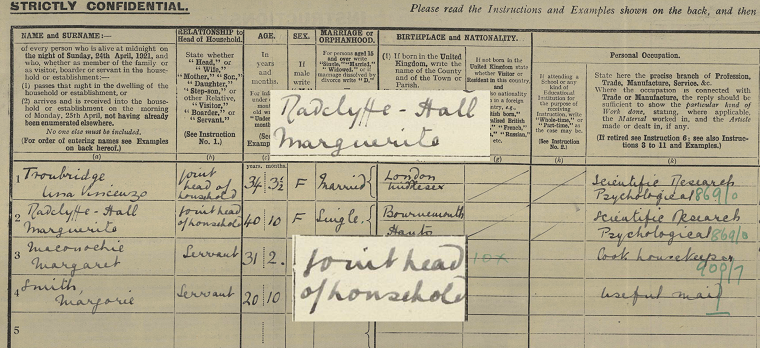 STRICTLY CONFIDENTIAL.
Please read the Instructions and Examples shown on the back, and then
NAME and SURNAME:—
of every person who is alive at midnight on
the night of Sunday, 24th April, 1921, and
who, whether as member of the family or
as visitor, boarder or servant in the house-
hold or establishment:—
(1) passes that night in the dwelling of the
household or establishment, or
(2) arrives and is received into the house-
hold or establishment on the morning
of Monday, 25th April, not having already
been enumerated elsewhere.
No one else must be included.
(For order of entering names see Examples
on back hereof.)
(a)
RELATIONSHIP to
Head of Household.
State whether
"Head," or
"Wife,"
"Mother," "Son,"
"Daughter,"
"Step-son," or
other Relative,
"Visitor,"
"Boarder," or
"Servant."
(See Instruction
No. 1.)
(b)
AGE.
In
years
and
months.
years. months.
SEX.
If
male
MARRIAGE or
ORPHANHOOD.
For persons aged 15
and over write
"Single," "Married,"
"Widowed," or if
marriage dissolved by
divorce write "D."
BIRTHPLACE and NATIONALITY.
(1) If born in the United
Kingdom, write the
name of the County
and of the Town or
Parish.
If not born in the
United Kingdom state
whether Visitor or
Resident in this country.
(g)
If attending a
School or any
kind of
Educational
Institution for
the purpose of
receiving
Instruction, write
"Whole-time," or
"Part-time," as
the case may be.
(See Instruction
No. 2.)
(h)
Personal Occupation.
State here the precise branch of Profession,
Trade, Manufacture, Service, &c.
Where the occupation is connected with
Trade or Manufacture, the reply should be
sufficient to show the particular kind of
Work done, stating, where applicable,
the Material worked in, and the Article
made or dealt in, if any.
(If retired see Instruction 6; see also Instruc-
tions 3 to 11 and Examples.)
(k)
Radclyffe-Hall
Marguerite
1 Troubridge
Una Vincenzo
Joint
head of
household
34 3½ F Married
London
Middlesex
Scientific Research
Psychological 869/0
2 Radclyffe-Hall
Marguerite
Joint head
of household
40 10 F Single
Bournemouth
Hants
Scientific Research
Psychological 869/0
3 Maconochie
Margaret
Servant 31 2.
10x
Cook housekeeper
909/7
Joint head
of household
4 Smith,
Marjorie
Servant 20 10
useful maid
5